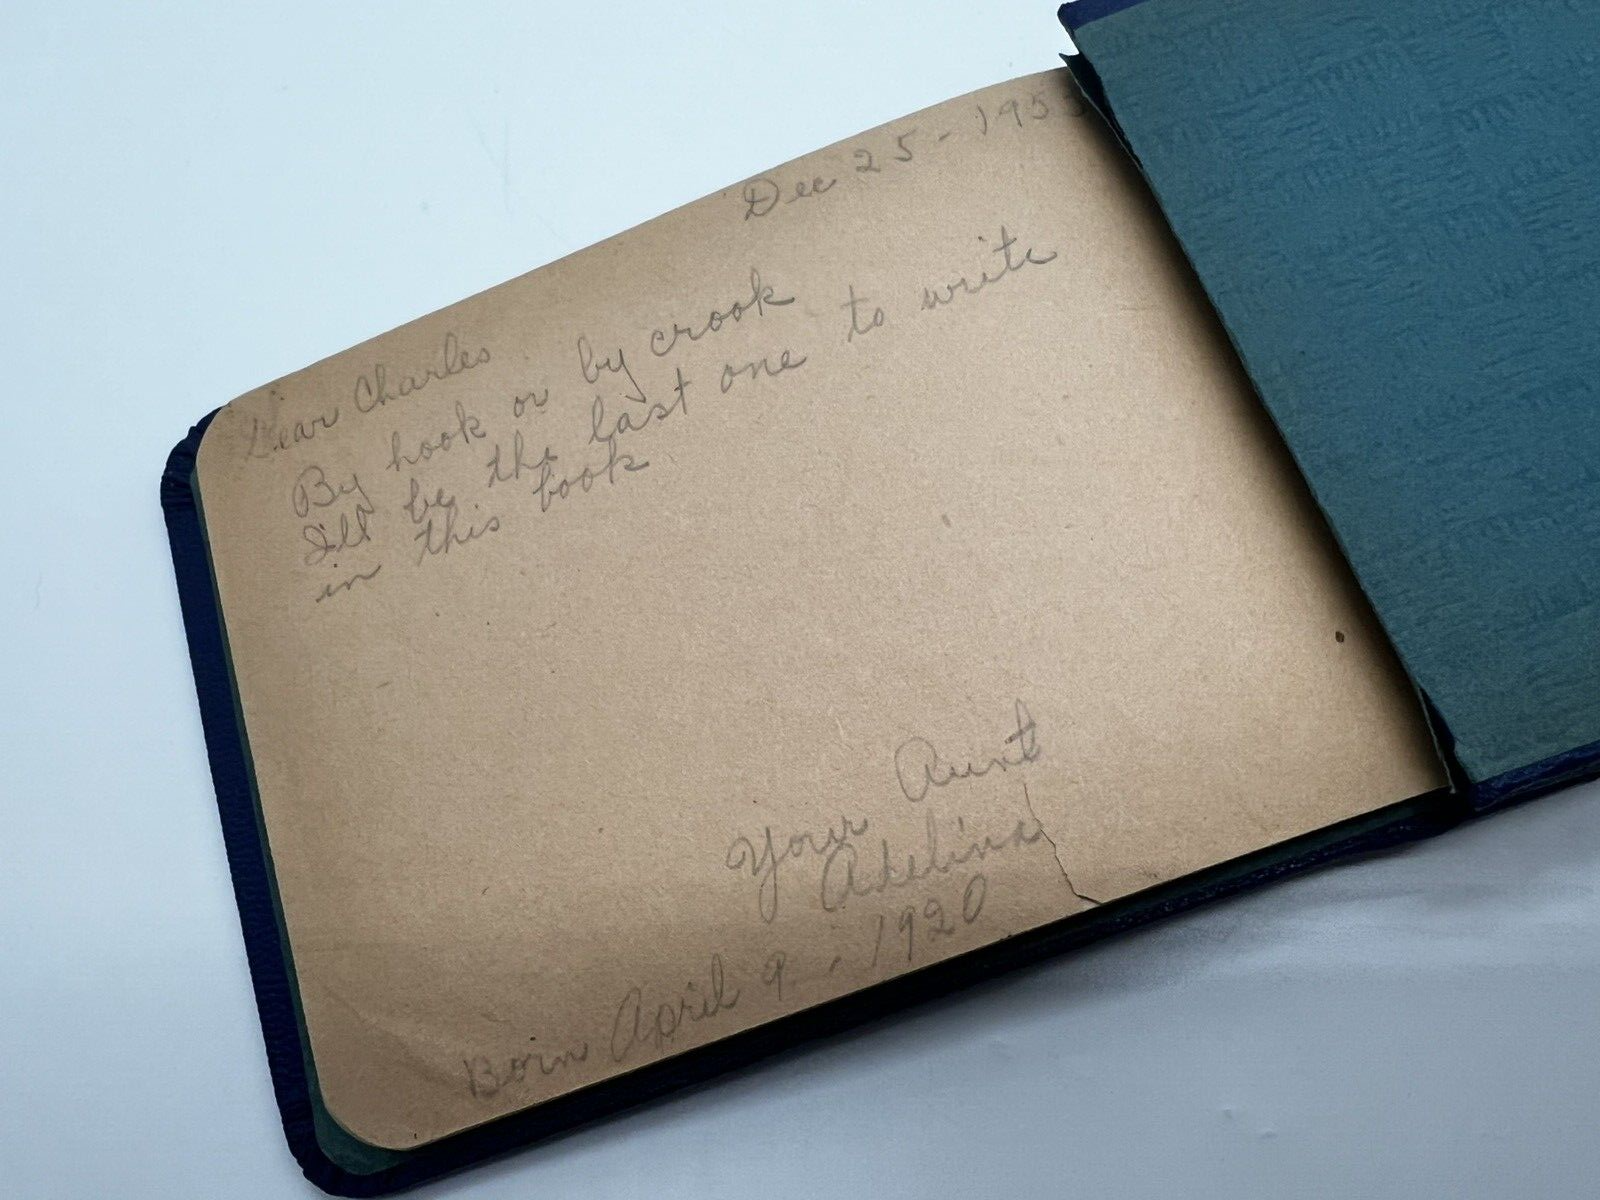 Dec 25 - 1953
Dear Charles
By hook or by crook
I'll be the last one to write
in this book
Your Aunt
Adelina
Born April 9, 1920